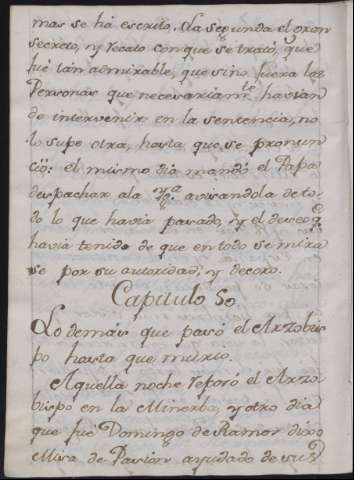 mas se há escrito. La segunda el gran
secreto, y recato con que se trató, que
fué tan admirable, que si no fuera las
Personas que necesariamte havian
de intervenir en la sentencia, no
lo supo otra, hasta que se pronun
ció: el mismo dia mandó el Papa
despachar ala avisandola de to
do lo que havia pasado, y el deseo q
havia tenido de que en todo se mira
se por su autoridad, y decoro.
Capitulo 5o
Lo demás que pasó el Arzobis
po hasta que murio.
Aquella noche reposó el Arzo
bispo en la Minerba, y otro dia
que fué Domingo de Ramos dixo
Misa de Pasion ayudado de sus